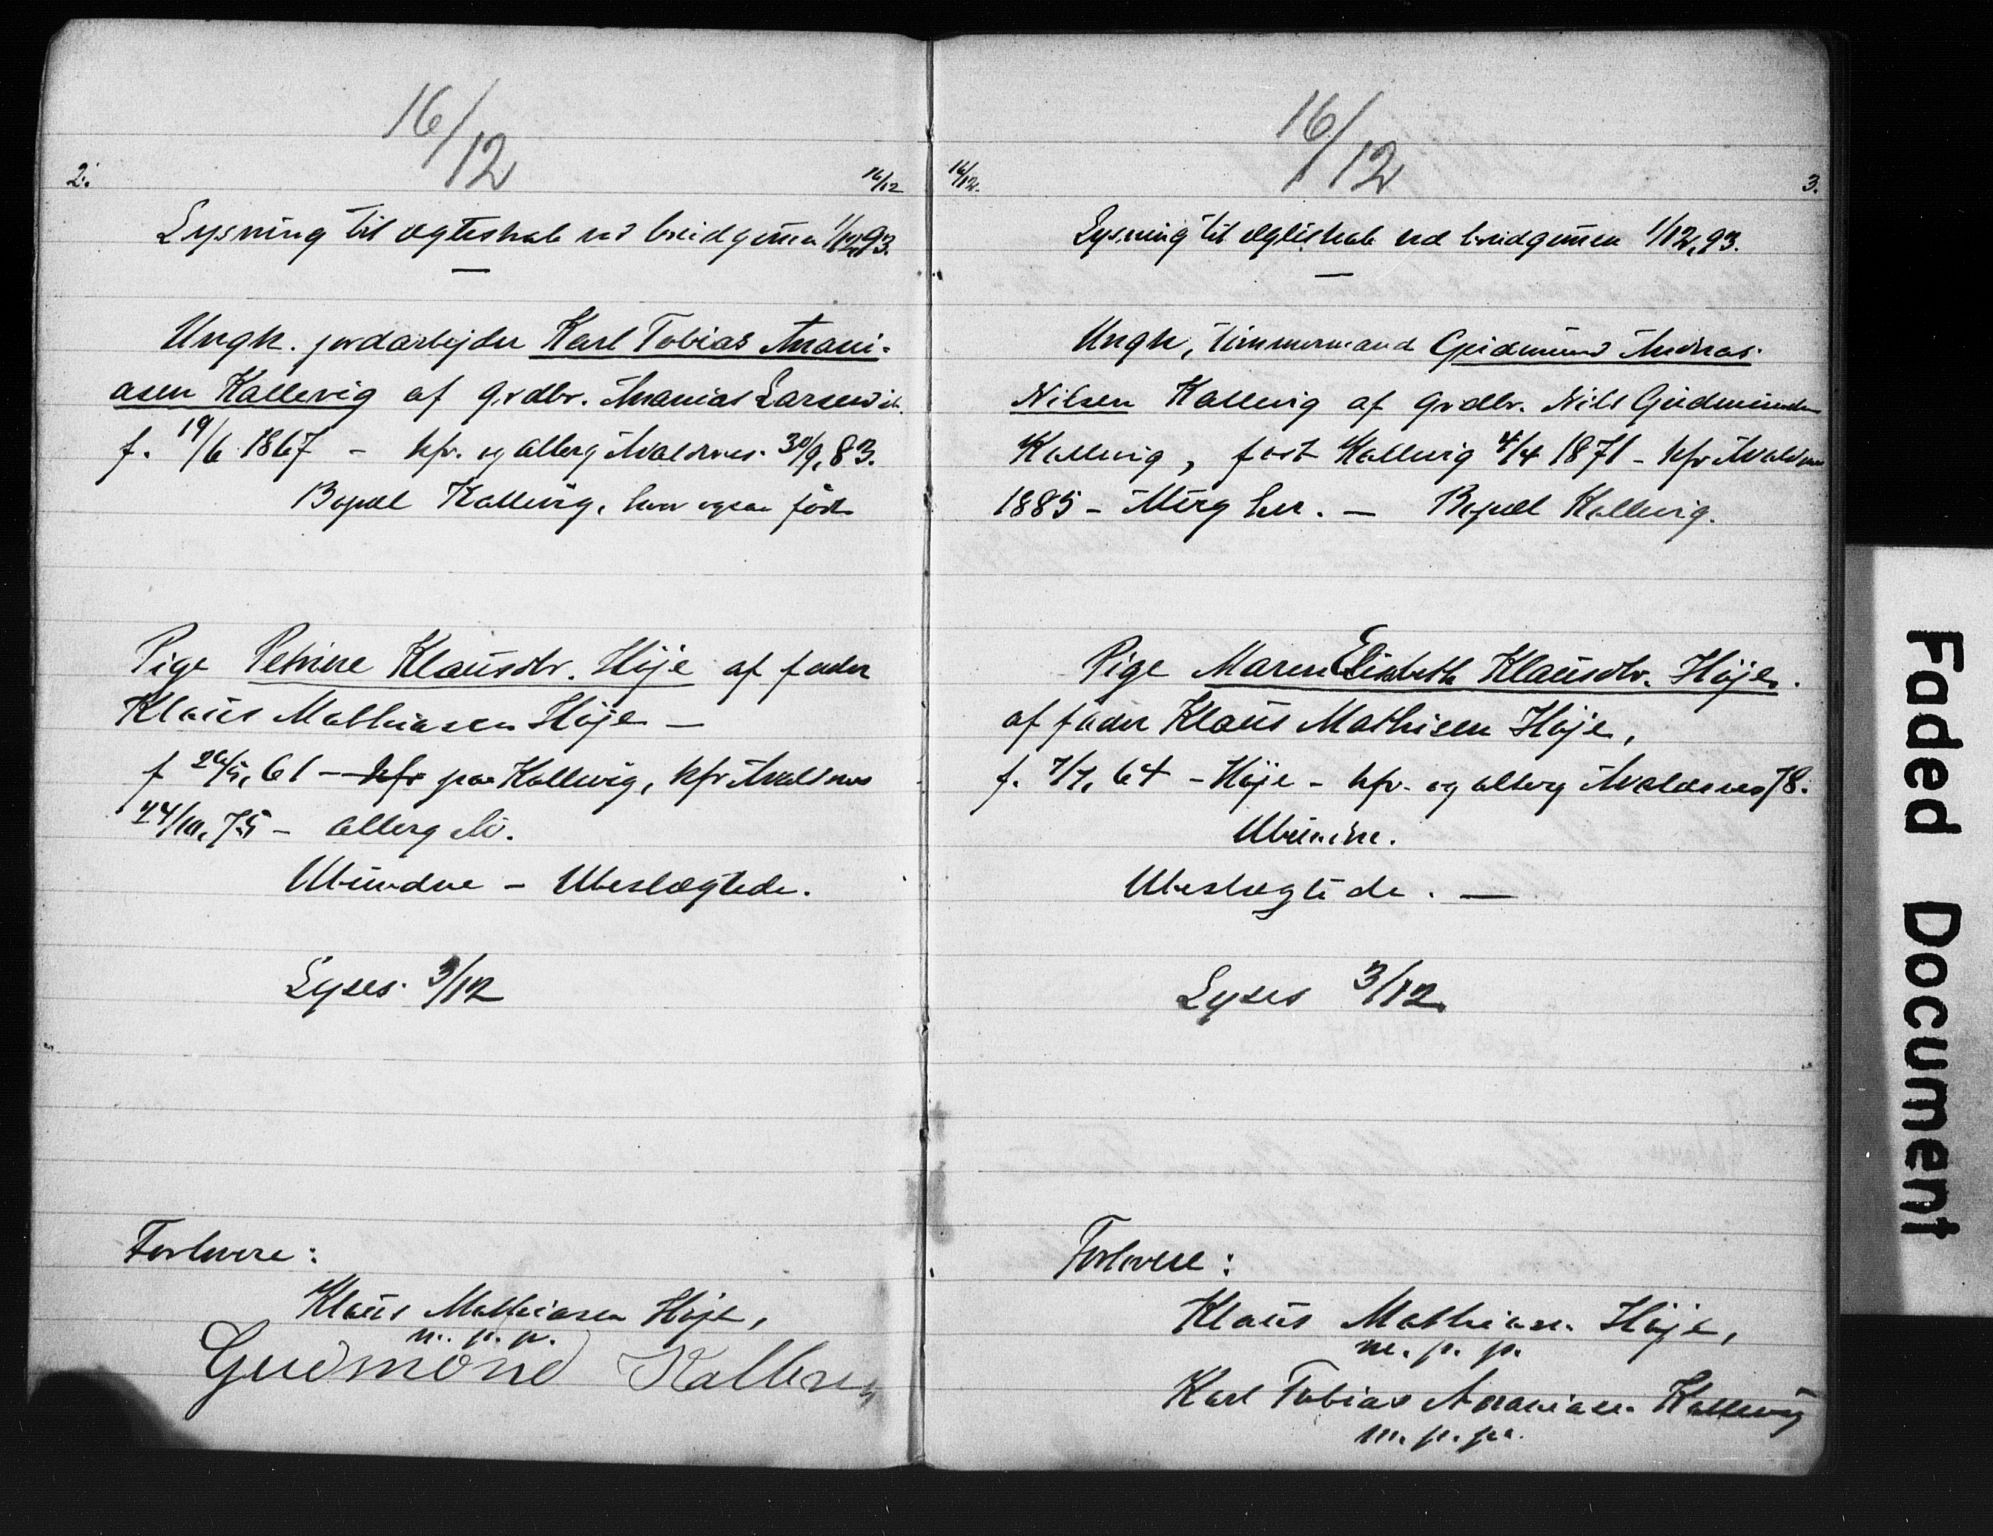 16/12
2.
16/12
Lysning til ægteskab ved brudgommen 1/12,93.
Ungk. jordarbejder Karl Tobias Anani-
asen Kallevig af grdbr. Ananias Larsen
f. 19/6 1867 - kfr. og altberg Avaldsnes. 30/9,83.
Bopæl Kallevig, hvor ogsaa født
Pige Petrine Klausdtr. Høje af fader
Klaus Mathiasen Høje —
f 26/5, 61 — kfr paa Kallevig, kfr Avaldsnes
24/10, 75 — altberg do.
Ubundne — Ubeslægtede.
Lyses 3/12
Forlovere:
Klaus Mathiasen Høje,
m. p. p.
Gudmond Kallevig
16/12
16/12.
3.
Lysning til ægteskab ved brudgommen 1/12,93.
Ungk, tømmermand Gudmund Andreas
Nilsen Kallevig af grdbr. Nils Gudmundsen
Kallevig, født Kallevig 4/4 1871 - kfr Avaldsnes
1885 - Altberg her. — Bopæl Kallevig.
Pige Maren Elisabeth Klausdtr. Høje.
af fader Klaus Mathisen Høje,
f. 7/7, 64 - Høje - kfr. og altberg Avaldsnes 78.
Ubundne.
Ubeslægtede. —
Lyses 3/12.
Forlovere:
Klaus Mathiasen Høje,
m. p. p.
Karl Tobias Ananiasen Kallevig
m. p. p.
Faded Document